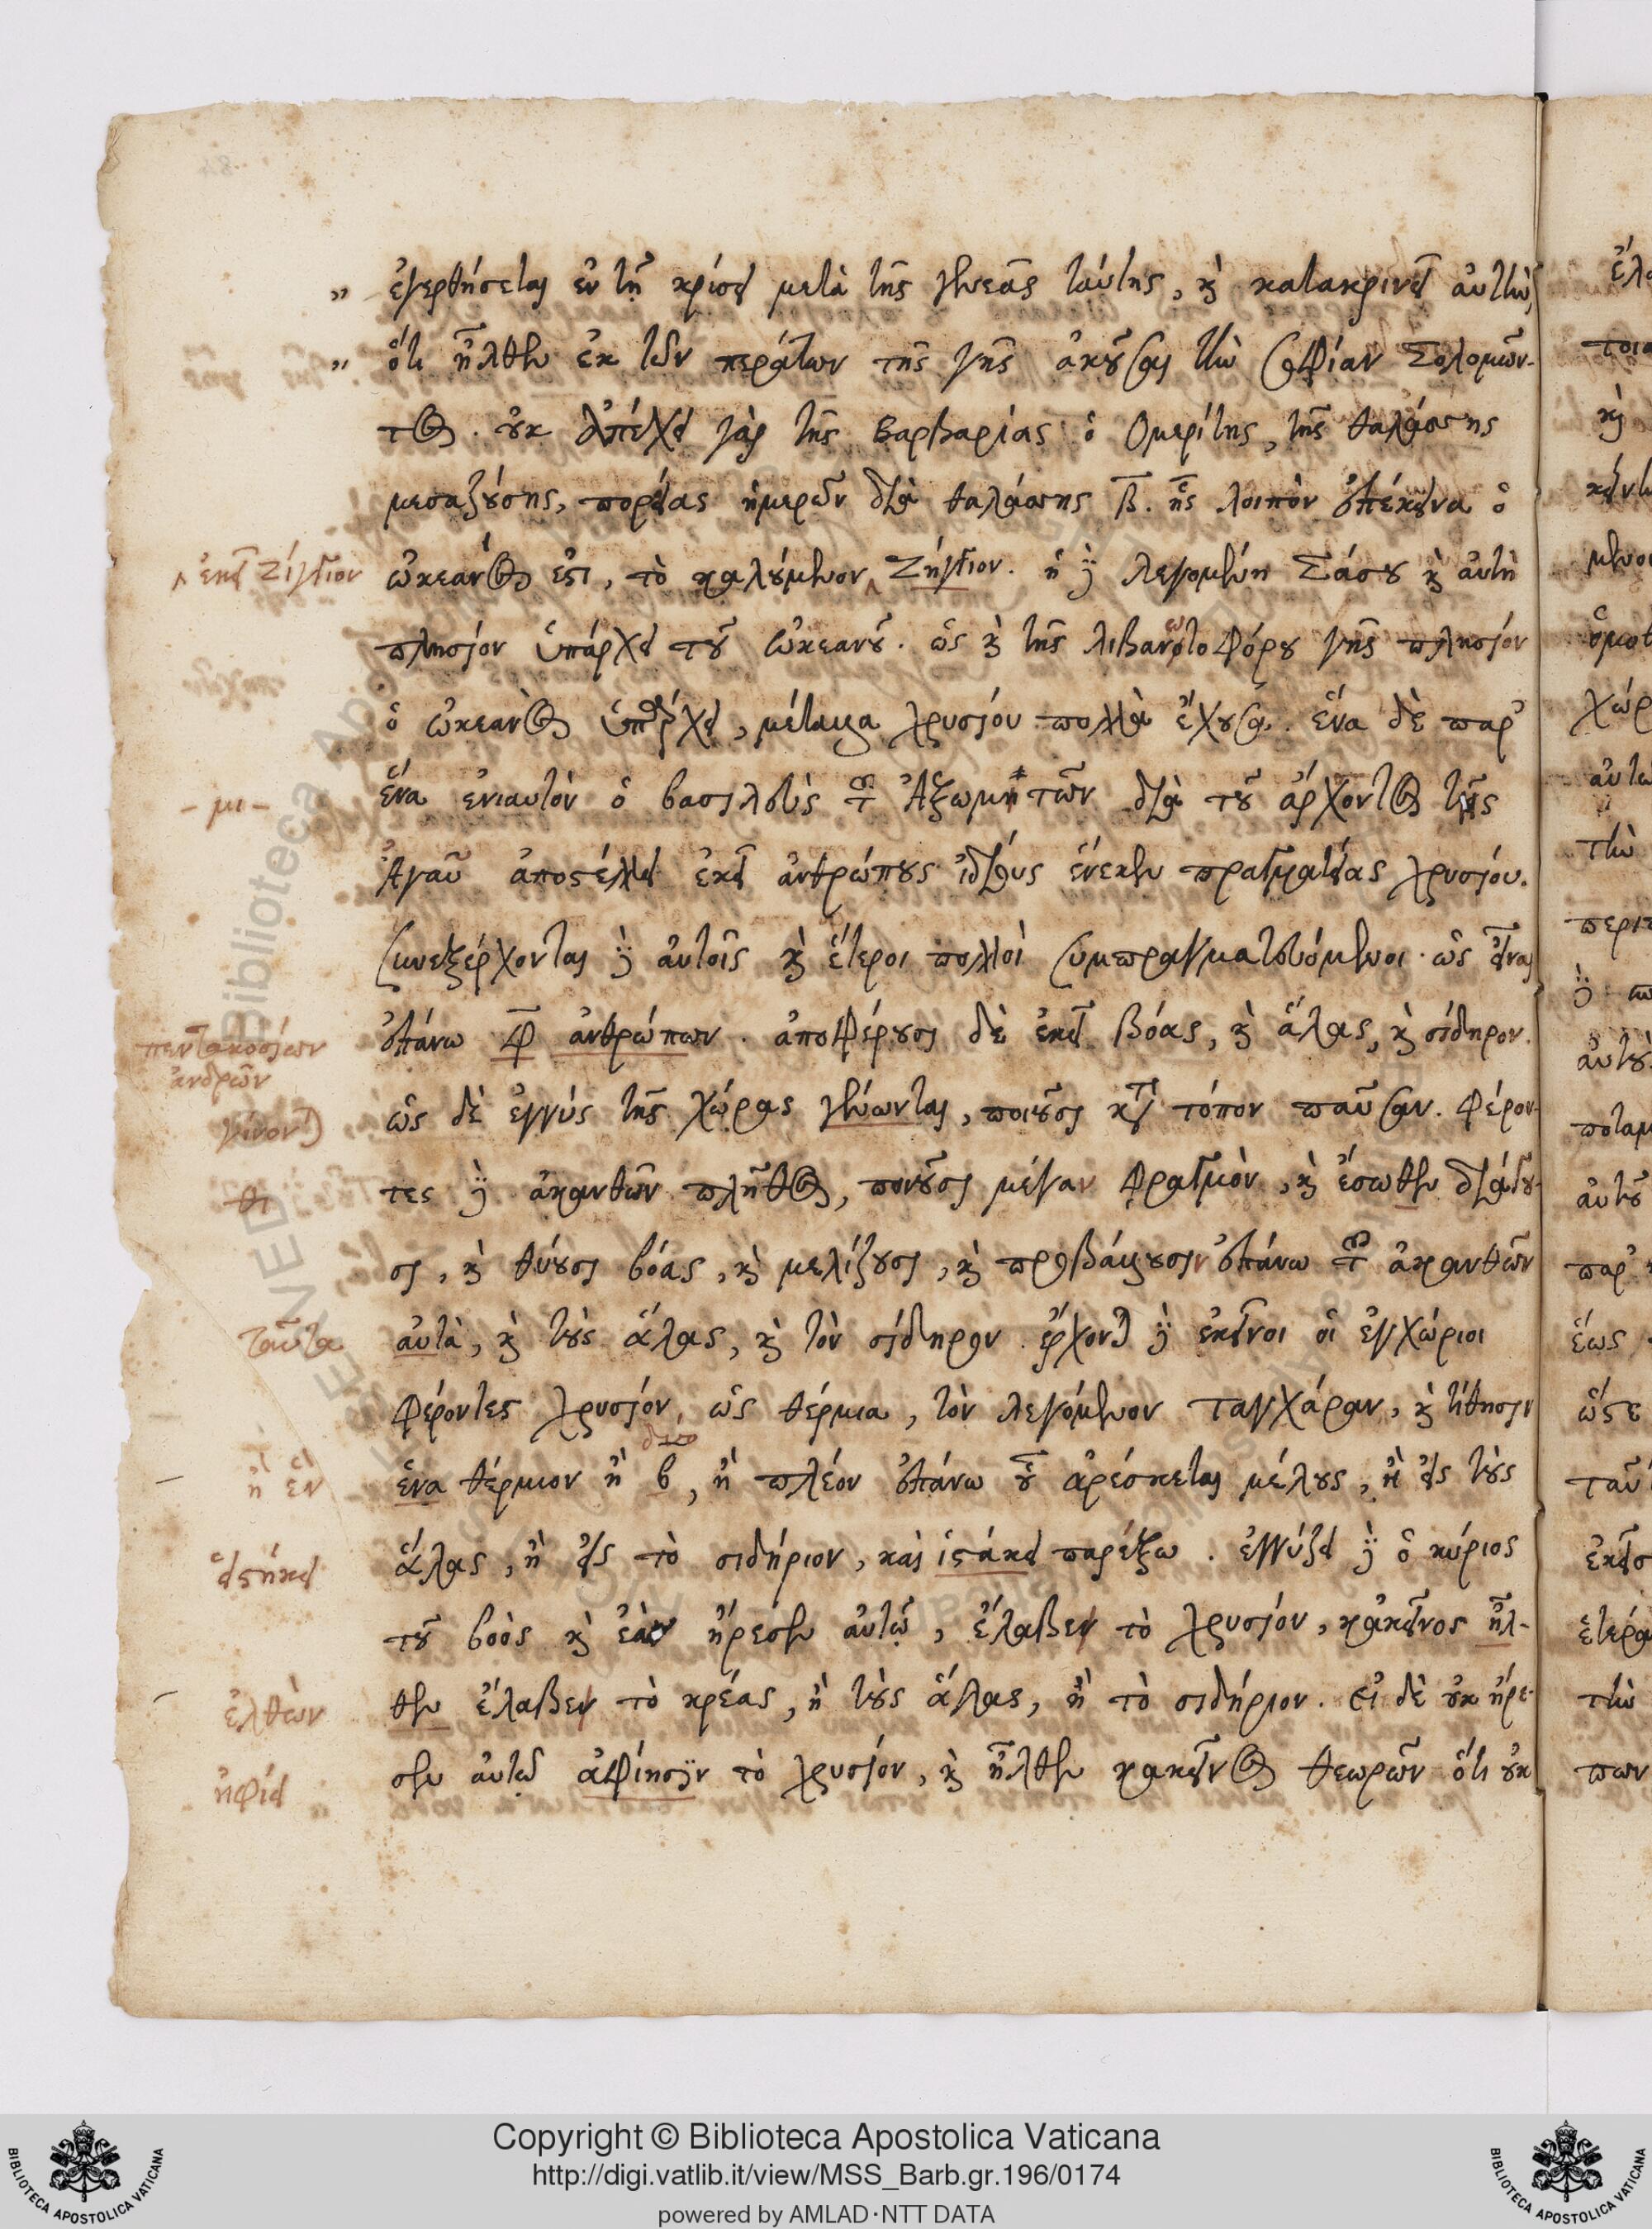 ἐγερθήσεται ἐν τῇ κρίσει μετὰ τῆς γενεᾶς ταύτης, καὶ κατακρινεῖ αὐτὴν,
ὅτι ἦλθεν ἐκ τῶν περάτων τῆς γῆς ἀκοῦσαι τὴν σοφίαν Σολομῶν-
τος. οὐκ ἀπέχει γὰρ τῆς βαρβαρίας ὁ Ὁμερίτης, τῆς θαλάσσης
μεσαζούσης, πορείας ἡμερῶν διὰ θαλάσσης β. ἧς λοιπὸν ἐπέκεινα ὁ
ἐκεῖ Ζίγγιον
ὠκεανός ἐστι, τὸ καλούμενον Ζήγγιον. ἡ δὲ λεγομένη Σάσου καὶ αὐτὴ
πλησίον ὑπάρχει τοῦ ὠκεανοῦ. ὡς καὶ τῆς λιβανοτοφόρου γῆς πλησίον
ὁ ὠκεανὸς ὑπάρχει, μέταλλα χρυσίου πολλὰ ἔχουσα. ἕνα δὲ παρ'
- μι -
ἕνα ἐνιαυτὸν ὁ βασιλεὺς τῶν Ἀξωμητῶν διὰ τοῦ ἄρχοντος τῆς
Ἀγαῦ ἀποστέλλει ἐκεῖ ἀνθρώπους ἰδίους ἕνεκεν πραγματείας χρυσίου.
συνεξέρχονται δὲ αὐτοῖς καὶ ἕτεροι πολλοὶ συμπραγματευόμενοι. ὡς εἶναι
πεντακοσίων
ἀνδρῶν
ἐπάνω φ ἀνθρώπων. ἀποφέρουσι δὲ ἐκεῖ βόας, καὶ ἅλας, καὶ σίδηρον.
γίνονται
ὡς δὲ ἐγγύς τῆς χώρας γένωνται, ποιοῦσι κατὰ τόπον παῦσαν. φέρον-
θι
τες δὲ ἀκανθῶν πλῆθος, ποιοῦσι μέγαν φραγμὸν, καὶ ἔσωθεν διάγου-
σι, καὶ θύουσι βόας, καὶ μελίζουσι, καὶ προβάλλουσιν ἐπάνω τῶν ἀκανθῶν
ταῦτα
αὐτὰ, καὶ τοὺς ἅλας, καὶ τὸν σίδηρον. ἔρχονται δὲ ἐκεῖνοι οἱ ἐγχώριοι
φέροντες χρυσίον, ὡς θέρμια, τὸν λεγόμενον ταγχάραν, καὶ τίθησιν
δύο
ἢ ἓν
ἕνα θέρμιον ἢ β, ἢ πλέον ἐπάνω οὗ ἀρέσκεται μέλους, ἢ εἰς τοὺς
εἱστήκει
ἅλας, ἢ εἰς τὸ σιδήριον, καὶ ἱστάκει παρέξω. ἐγγύζει δὲ ὁ κύριος
τοῦ βοὸς καὶ ἐὰν ἤρεσεν αὐτῷ, ἔλαβεν τὸ χρυσίον, κἀκεῖνος ἦλ-
ἐλθὼν
θεν ἔλαβεν τὸ κρέας, ἢ τοὺς ἅλας, ἢ τὸ σιδήριον. εἰ δὲ οὐκ ἤρε-
ἠφίει
σεν αὐτῷ ἀφίησιν τὸ χρυσίον, καὶ ἦλθεν κἀκεῖνος θεωρῶν ὅτι οὐκ
Copyright © Biblioteca Apostolica Vaticana
http://digi.vatlib.it/view/MSS_Barb.gr.196/0174
powered by AMLAD·NTT DATA
BIBLIOTECA APOSTOLICA VATICANA
BIBLIOTECA APOSTOLICA VATICANA